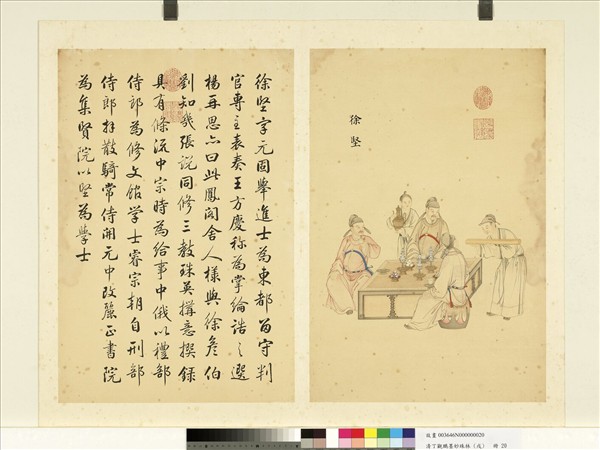 徐堅
徐堅字元固舉進士為東都留守判
官專主表奏王方慶稱為掌綸誥之選
楊再思亦曰此鳳閣舍人樣與徐彥伯
劉知幾張說同修三教珠英搆意撰錄
具有條流中宗時為給事中俄以禮部
侍郎為修文館学士睿宗朝自刑部
侍郎拜散騎常侍開元中改麗正書院
為集賢院以堅為學士
故畫 003646N000000020
清丁觀鵬墨妙珠林（戌） 冊 20